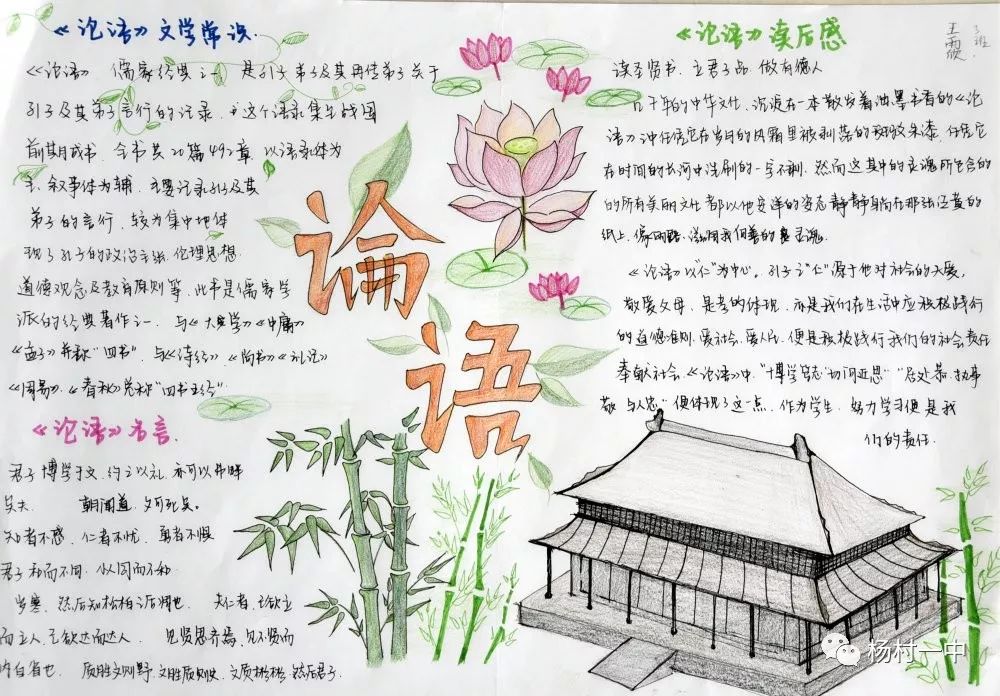 《论语》文学常识
《论语》 儒家经典之一 是孔子弟子及其再传弟子关于
孔子及其弟子言行的记录 这个语录集于战国
前期成书 全书共20篇492章 以语录体为
主、叙事体为辅 主要记录孔子及其
弟子的言行 较为集中地体
现了孔子的政治主张 伦理思想
道德观念及教育原则等 此书是儒家学
派的经典著作之一 与《大学》《中庸》
《孟子》并称"四书" 与《诗经》、《尚书》《礼记》
《周易》、《春秋》总称"四书五经"
《论语》名言
君子博学于文 约之以礼 亦可以弗畔
矣夫 朝闻道 夕可死矣。
知者不惑 仁者不忧 勇者不惧
君子和而不同 小人同而不和
岁寒 然后知松柏之后凋也 夫仁者 己欲立
而立人 己欲达而达人 见贤思齐焉 见不贤而
内自省也 质胜文则野 文胜质则史 文质彬彬 然后君子
论
语
《论语》读后感
王雨欣
班
读圣贤书 立君子品 做有德人
几千年的中华文化 沉浸在一本散发着油墨书香的《论
语》中 任凭它在岁月的风霜里被剥落的斑纹朱漆 任凭它
在时间的长河中洗刷的一字不剩 然而这其中的灵魂所包含的
的所有美丽文化都以他安详的姿态静静躺在那张泛黄的
纸上
《论语》以"仁"为中心。孔子之"仁"源于他对社会的大爱,
敬爱父母 是孝的体现 亦是我们在生活中应积极践行
的道德准则 爱社会 爱人民 便是积极践行我们的社会责任
奉献社会《论语》中"博学笃志 切问近思""居处恭 执事
敬 与人忠"便体现了这一点 作为学生 努力学习便是我
们的责任
杨村一中